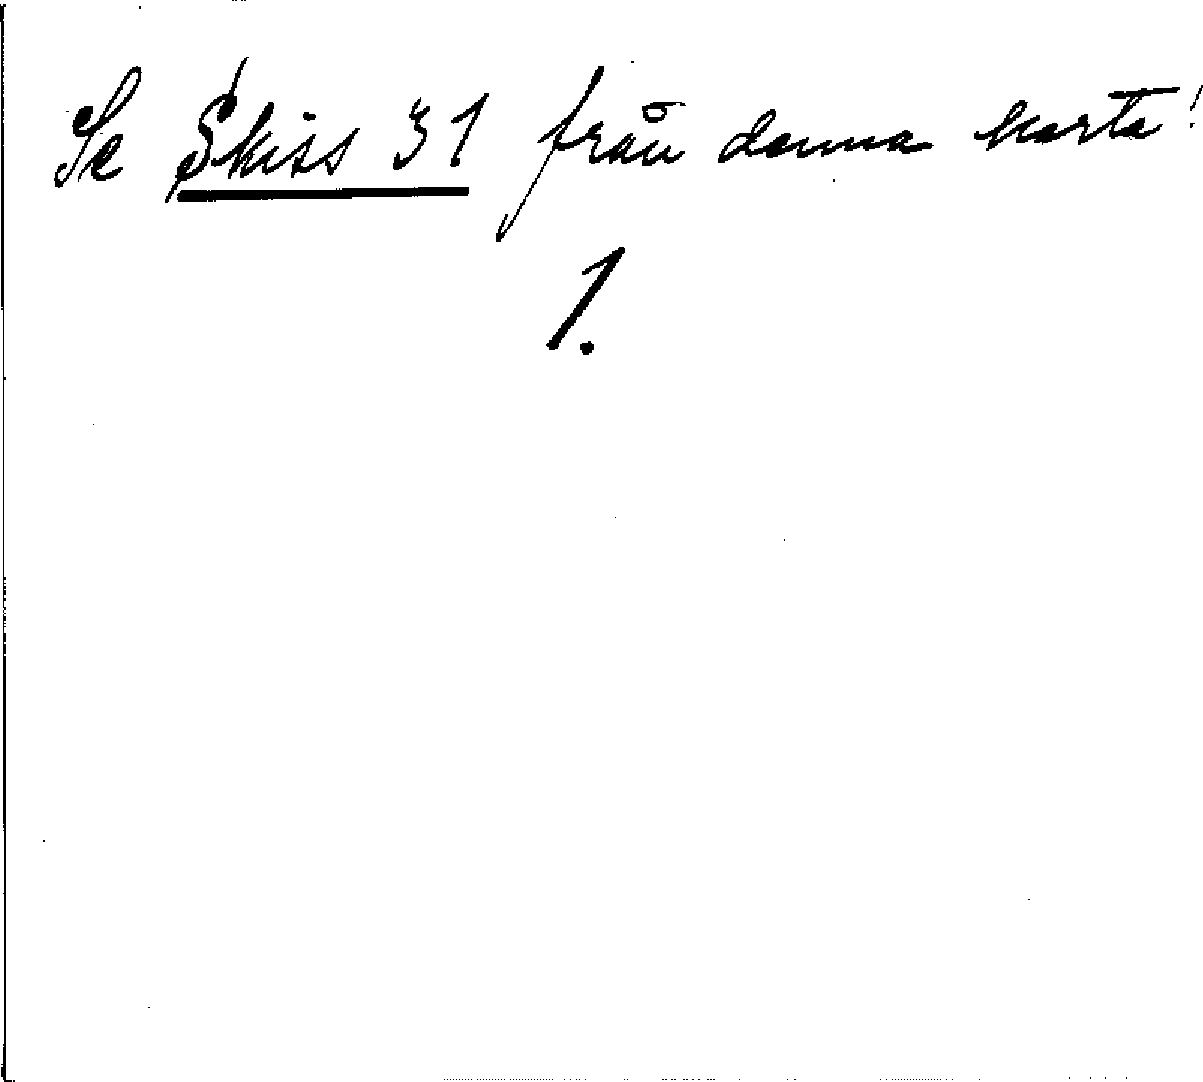 Se Skiss 31 från denna karta!
1.